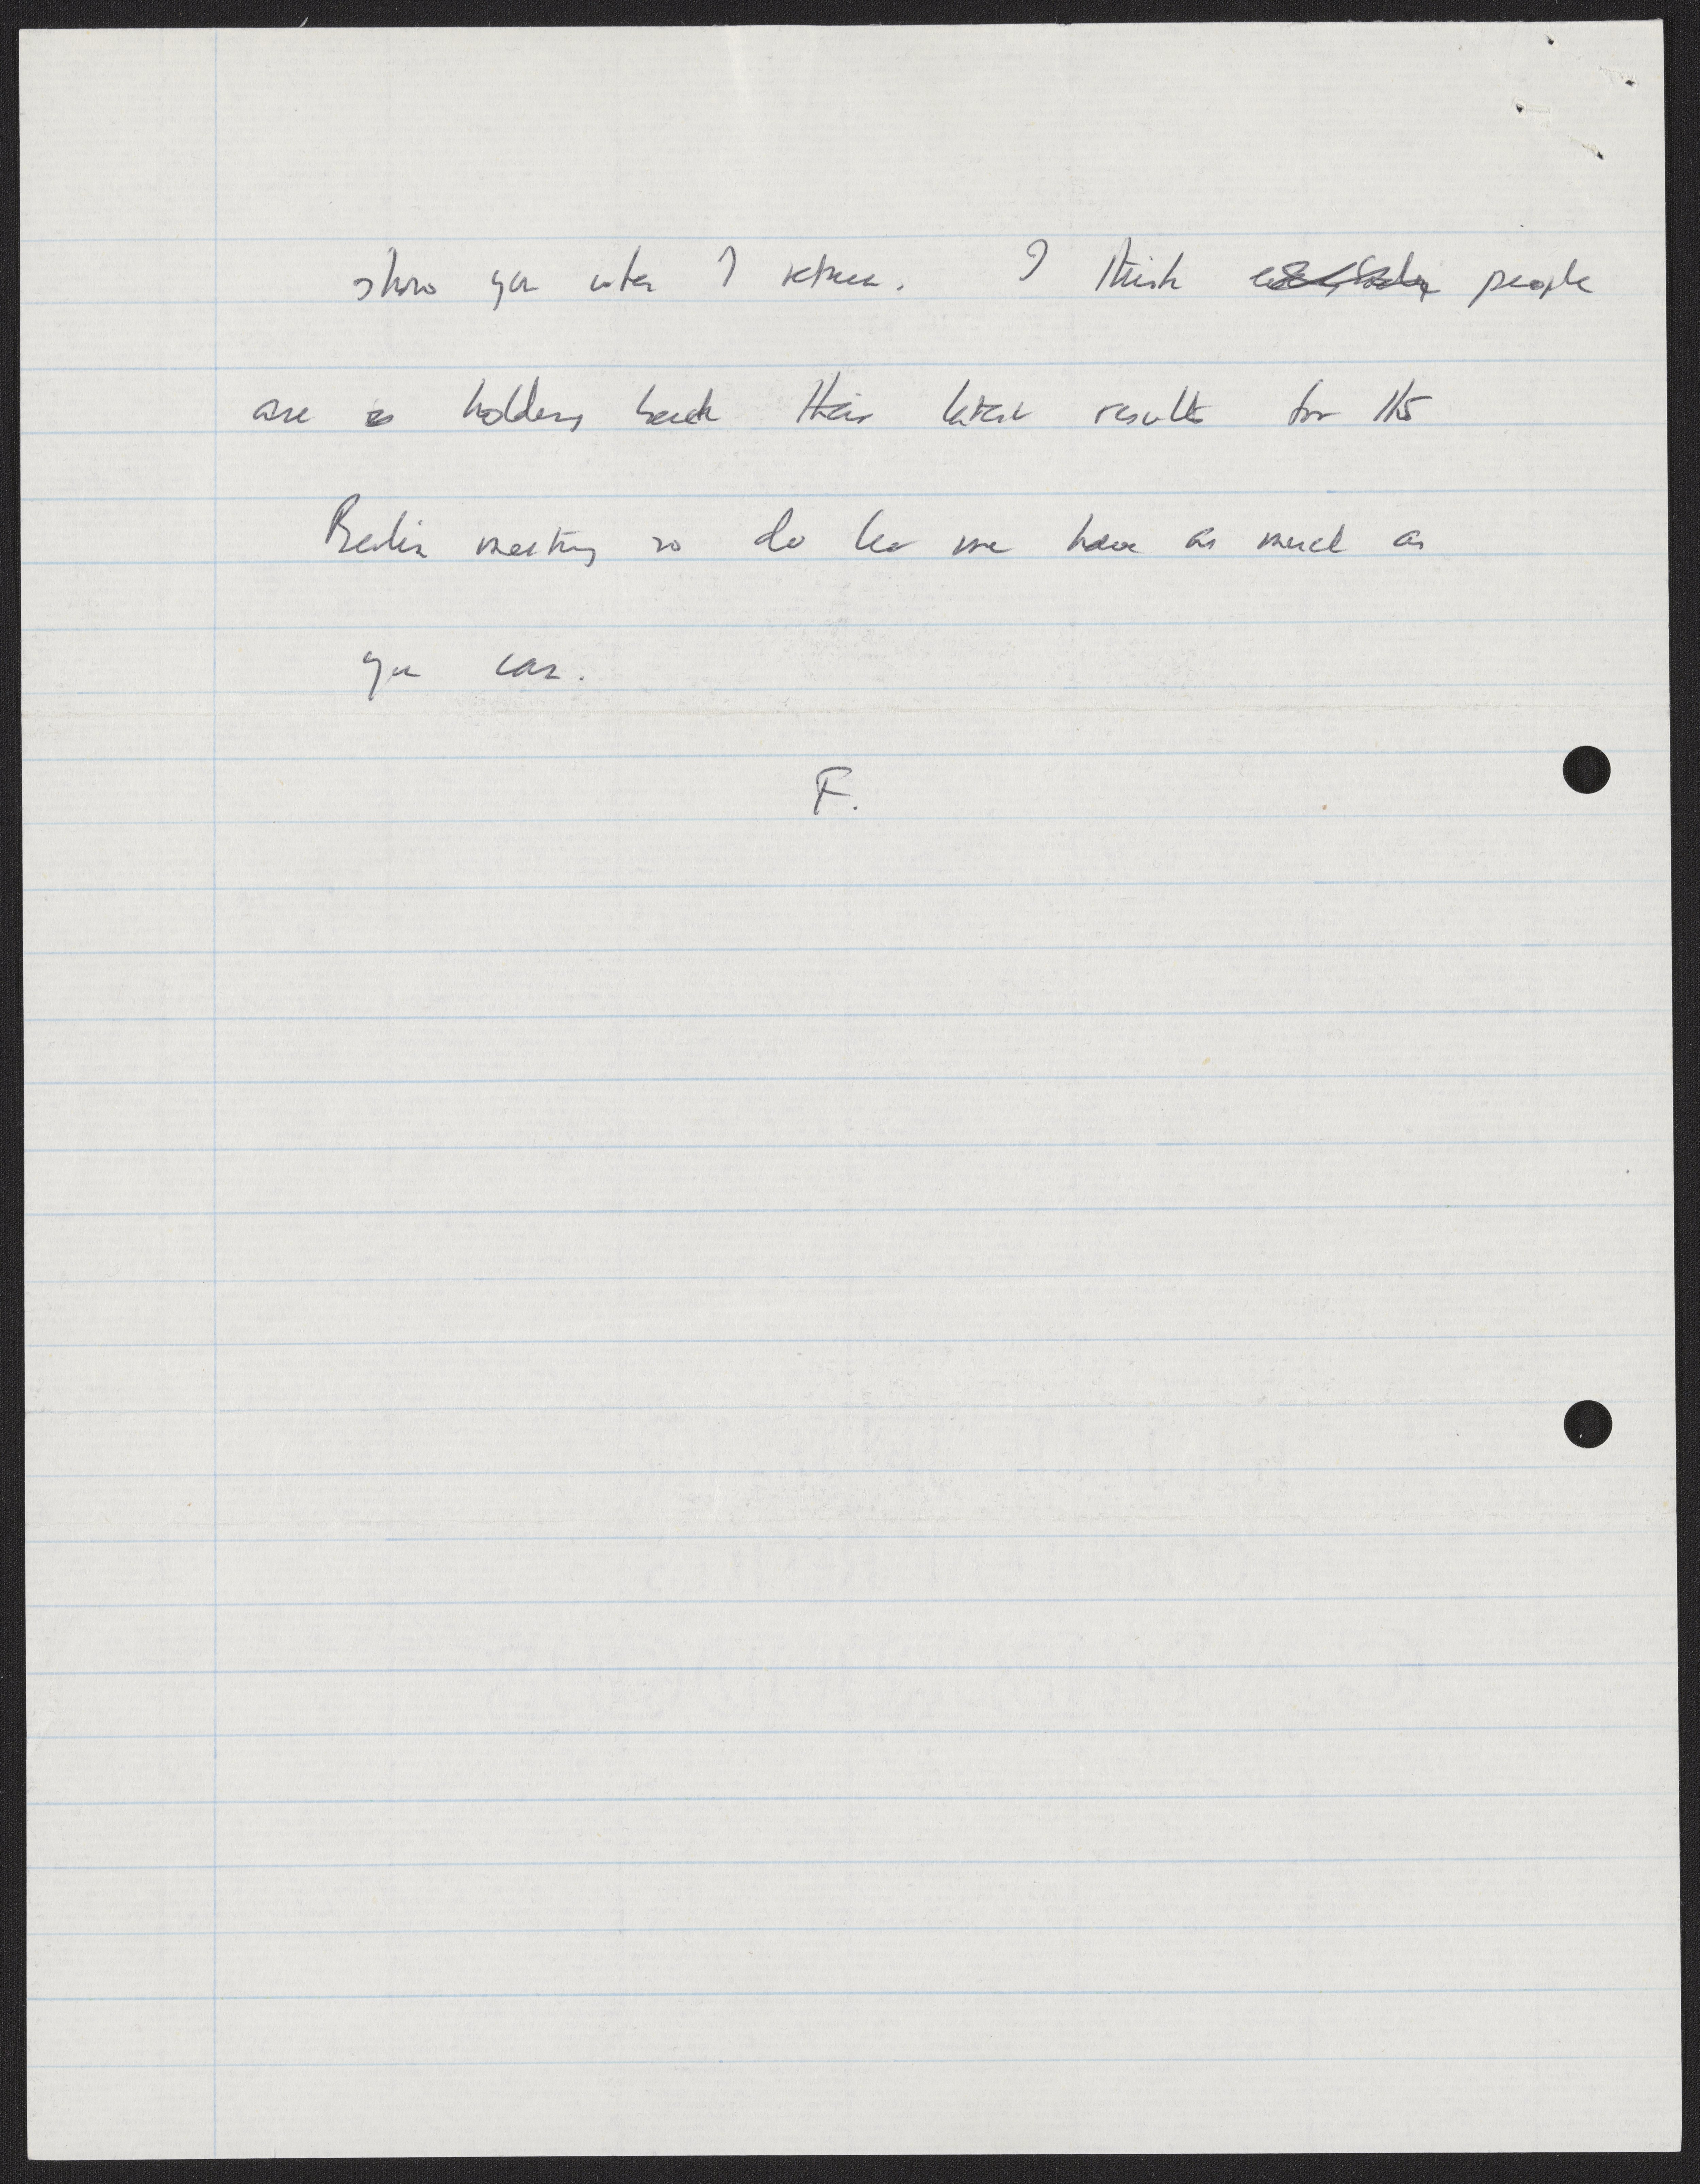 show you when I return. I think people
are holding back their latest results for the
Berlin meeting so do let me have as much as
you can.
F.